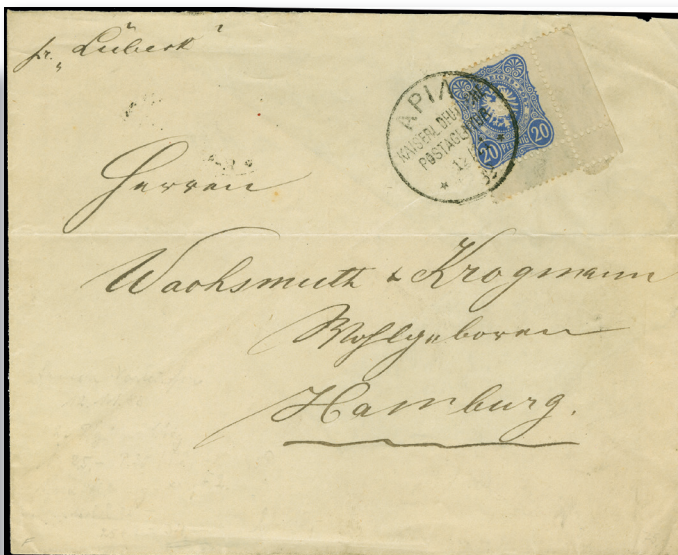 pr. „Lübeck"
APIA
KAISERL. DEUTSCHE
POSTAGENTUR
20 PFENNIG 20
Herren
Wachsmuth & Krogmann
Wohlgeboren
Hamburg.